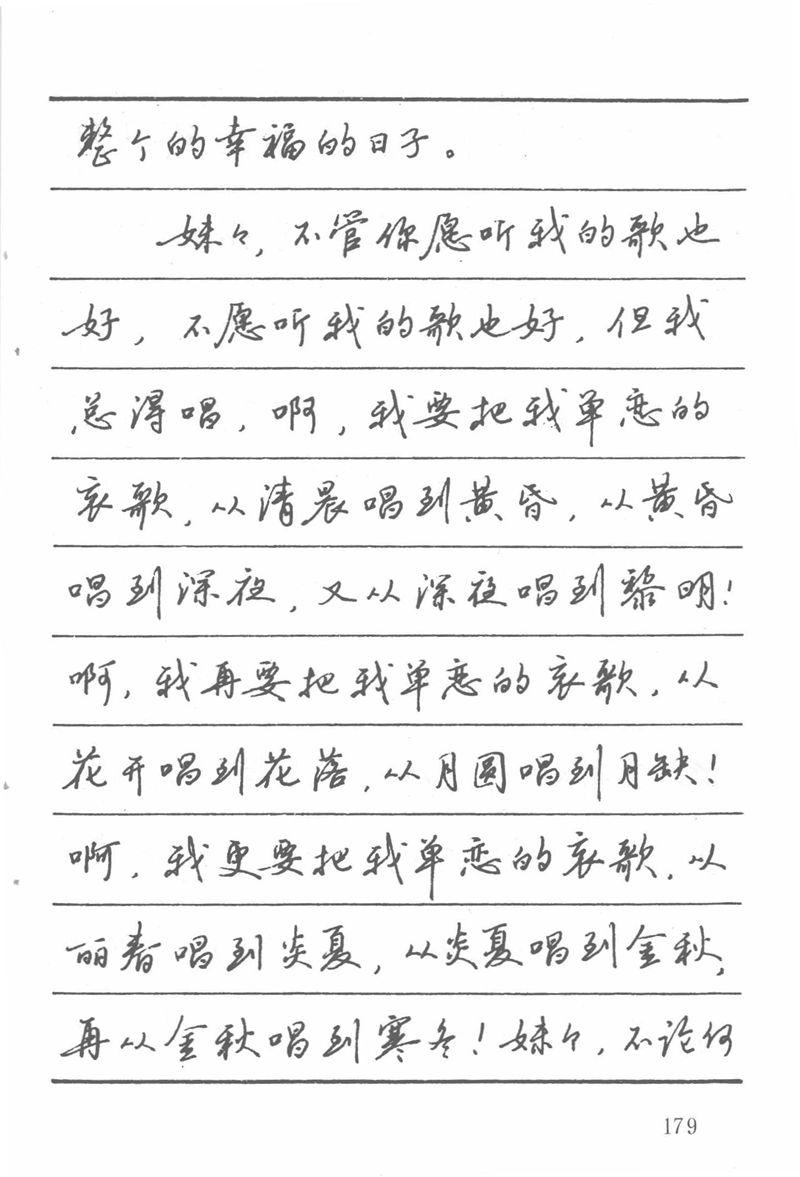 整个的幸福的日子。
妹々，不管你愿听我的歌也
好，不愿听我的歌也好，但我
总得唱，啊，我要把我单恋的
哀歌，从清晨唱到黄昏，从黄昏
唱到深夜，又从深夜唱到黎明！
啊，我再要把我单恋的哀歌，从
花开唱到花落，从月圆唱到月缺！
啊，我更要把我单恋的哀歌，从
丽春唱到炎夏，从炎夏唱到金秋，
再从金秋唱到寒冬！妹々，不论何
179